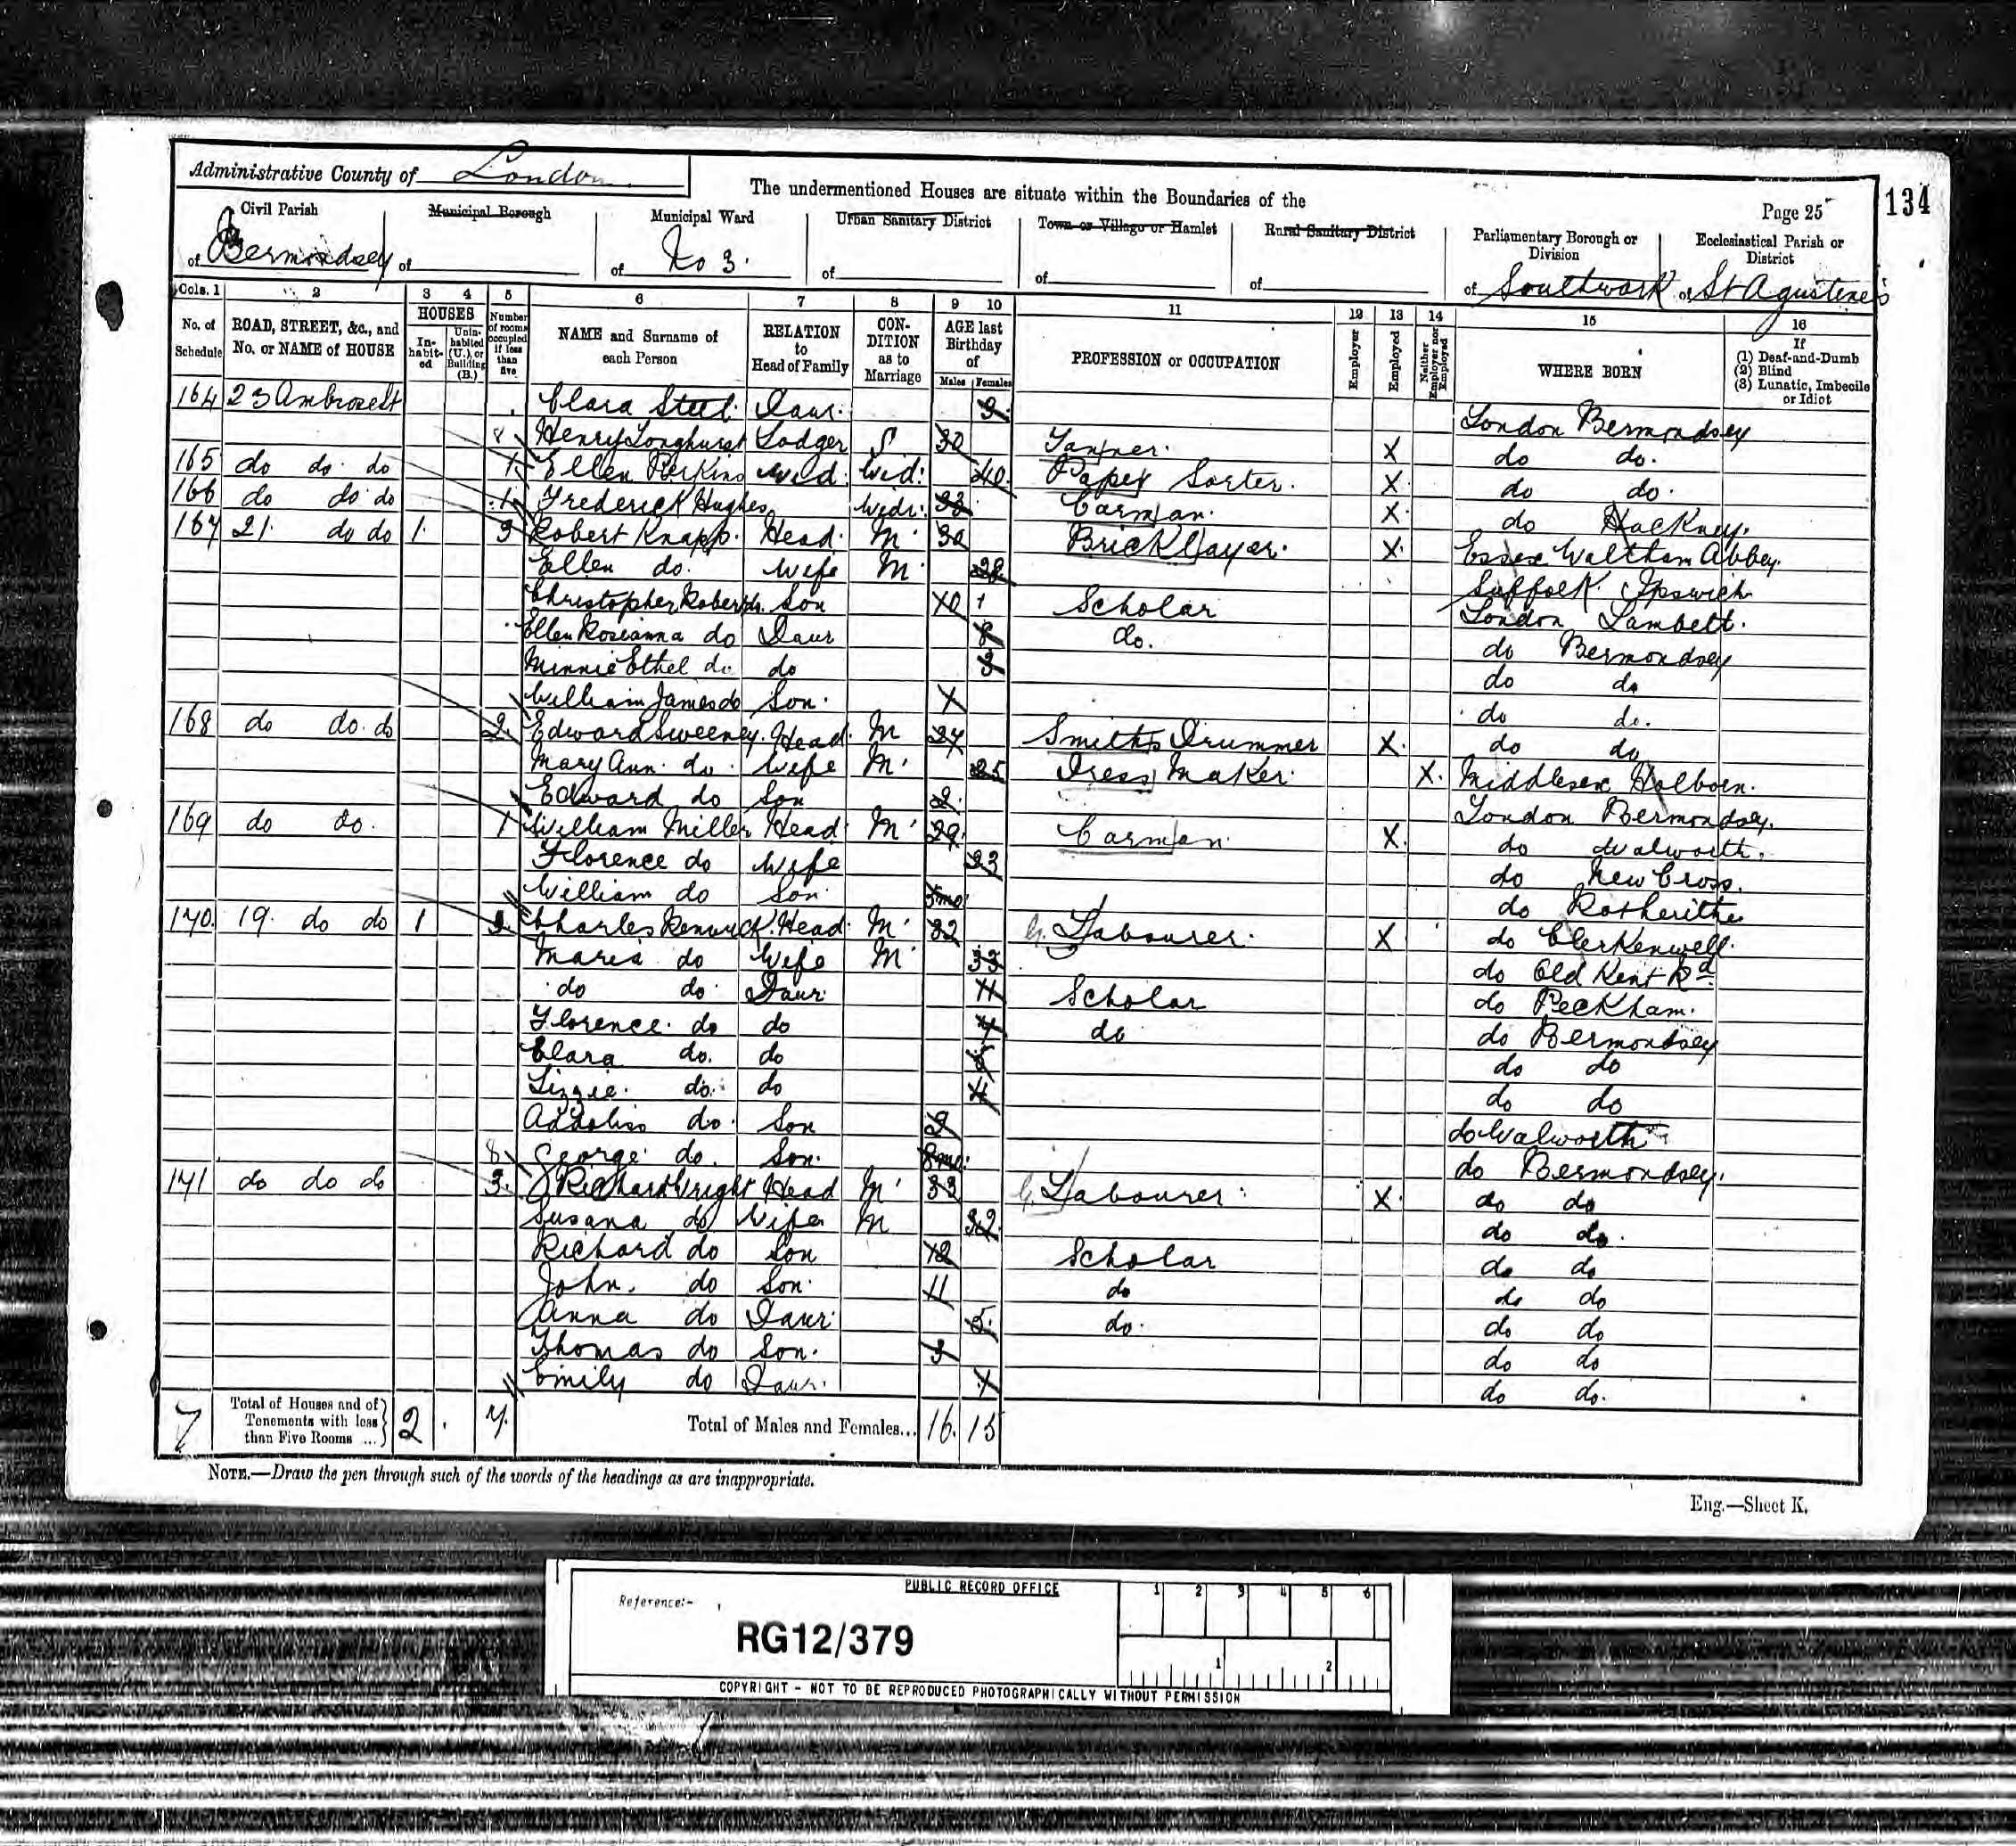 Administrative County of London
The undermentioned Houses are situate within the Boundaries of the
Page 25
134
Civil Parish of Bermondsey
Municipal Borough of
Municipal Ward of No 3.
Urban Sanitary District of
Town or Village or Hamlet of
Rural Sanitary District of
Parliamentary Borough or Division of Southwark
Ecclesiastical Parish or District of St Agustene's
Cols. 1 2 3 4 5 6 7 8 9 10 11 12 13 14 15 16
No. of Schedule
ROAD, STREET, &c., and No. or NAME of HOUSE
HOUSES
In-habit-ed
Unin-habited (U.), or Building (B.)
Number of rooms occupied if less than five
NAME and Surname of each Person
RELATION to Head of Family
CON-DITION as to Marriage
AGE last Birthday of
Males Females
PROFESSION or OCCUPATION
Employer
Employed
Neither Employer nor Employed
WHERE BORN
If (1) Deaf-and-Dumb (2) Blind (3) Lunatic, Imbecile or Idiot
164 23 Ambrose St Clara Steel Daur. 9 London Bermondsey
Henry Longhurst Lodger S 30 Tanner. X do do.
165 do do do 1 Ellen Perkins Wid. Wid: 40 Paper Sorter. X do do.
166 do do do 1 Frederick Hughes Widr. 33 Carman. X do Hackney.
167 21. do do 1. 3 Robert Knapp. Head. M 30 Bricklayer. X Essex Waltham Abbey.
Ellen do. Wife M 28 Suffolk Ipswich
Christopher Robert do. Son 10 Scholar London Lambeth.
Ellen Roseanna do Daur 8 do. do Bermondsey
Minnie Ethel do do 3 do do
William James do Son. 1 do do.
168 do do. do 2. Edward Sweeney. Head. M 27 Smiths Drummer X. do do
Mary Ann. do. Wife M. 25 Dress Maker. X. Middlesex Holborn.
Edward do Son 2. London Bermondsey.
169 do do. 1 William Miller Head. M 29 Carman X. do Walworth.
Florence do Wife 23 do New Cross.
William do Son. 5mo do Rotherithe
170. 19. do do 1 3. Charles Renwick. Head. M 32 G. Labourer. X do Clerkenwell.
Maria do Wife M 33 do Old Kent Rd
do do Daur. 11 Scholar do Peckham.
Florence. do do 7 do do Bermondsey
Clara do. do do do
Lizzie. do. do 4 do do
do. Son 2 do Walworth
George do. Son. 8mo. do Bermondsey.
171 do do do 3. Richard Wright Head M 33 G. Labourer. X. do do
Susana do Wife M 32 do do.
Richard do Son 12 Scholar do do
John. do Son. 11 do do do
Anna do Daur. 5. do. do do
Thomas do Son. 3 do do
Emily do Daur. 1 do do.
7 Total of Houses and of Tenements with less than Five Rooms ... 2 7. Total of Males and Females... 16. 15
NOTE.—Draw the pen through such of the words of the headings as are inappropriate.
Eng.—Sheet K.
PUBLIC RECORD OFFICE
Reference:-
RG12/379
1 2 3 4 5 6
1 2
COPYRIGHT - NOT TO BE REPRODUCED PHOTOGRAPHICALLY WITHOUT PERMISSION